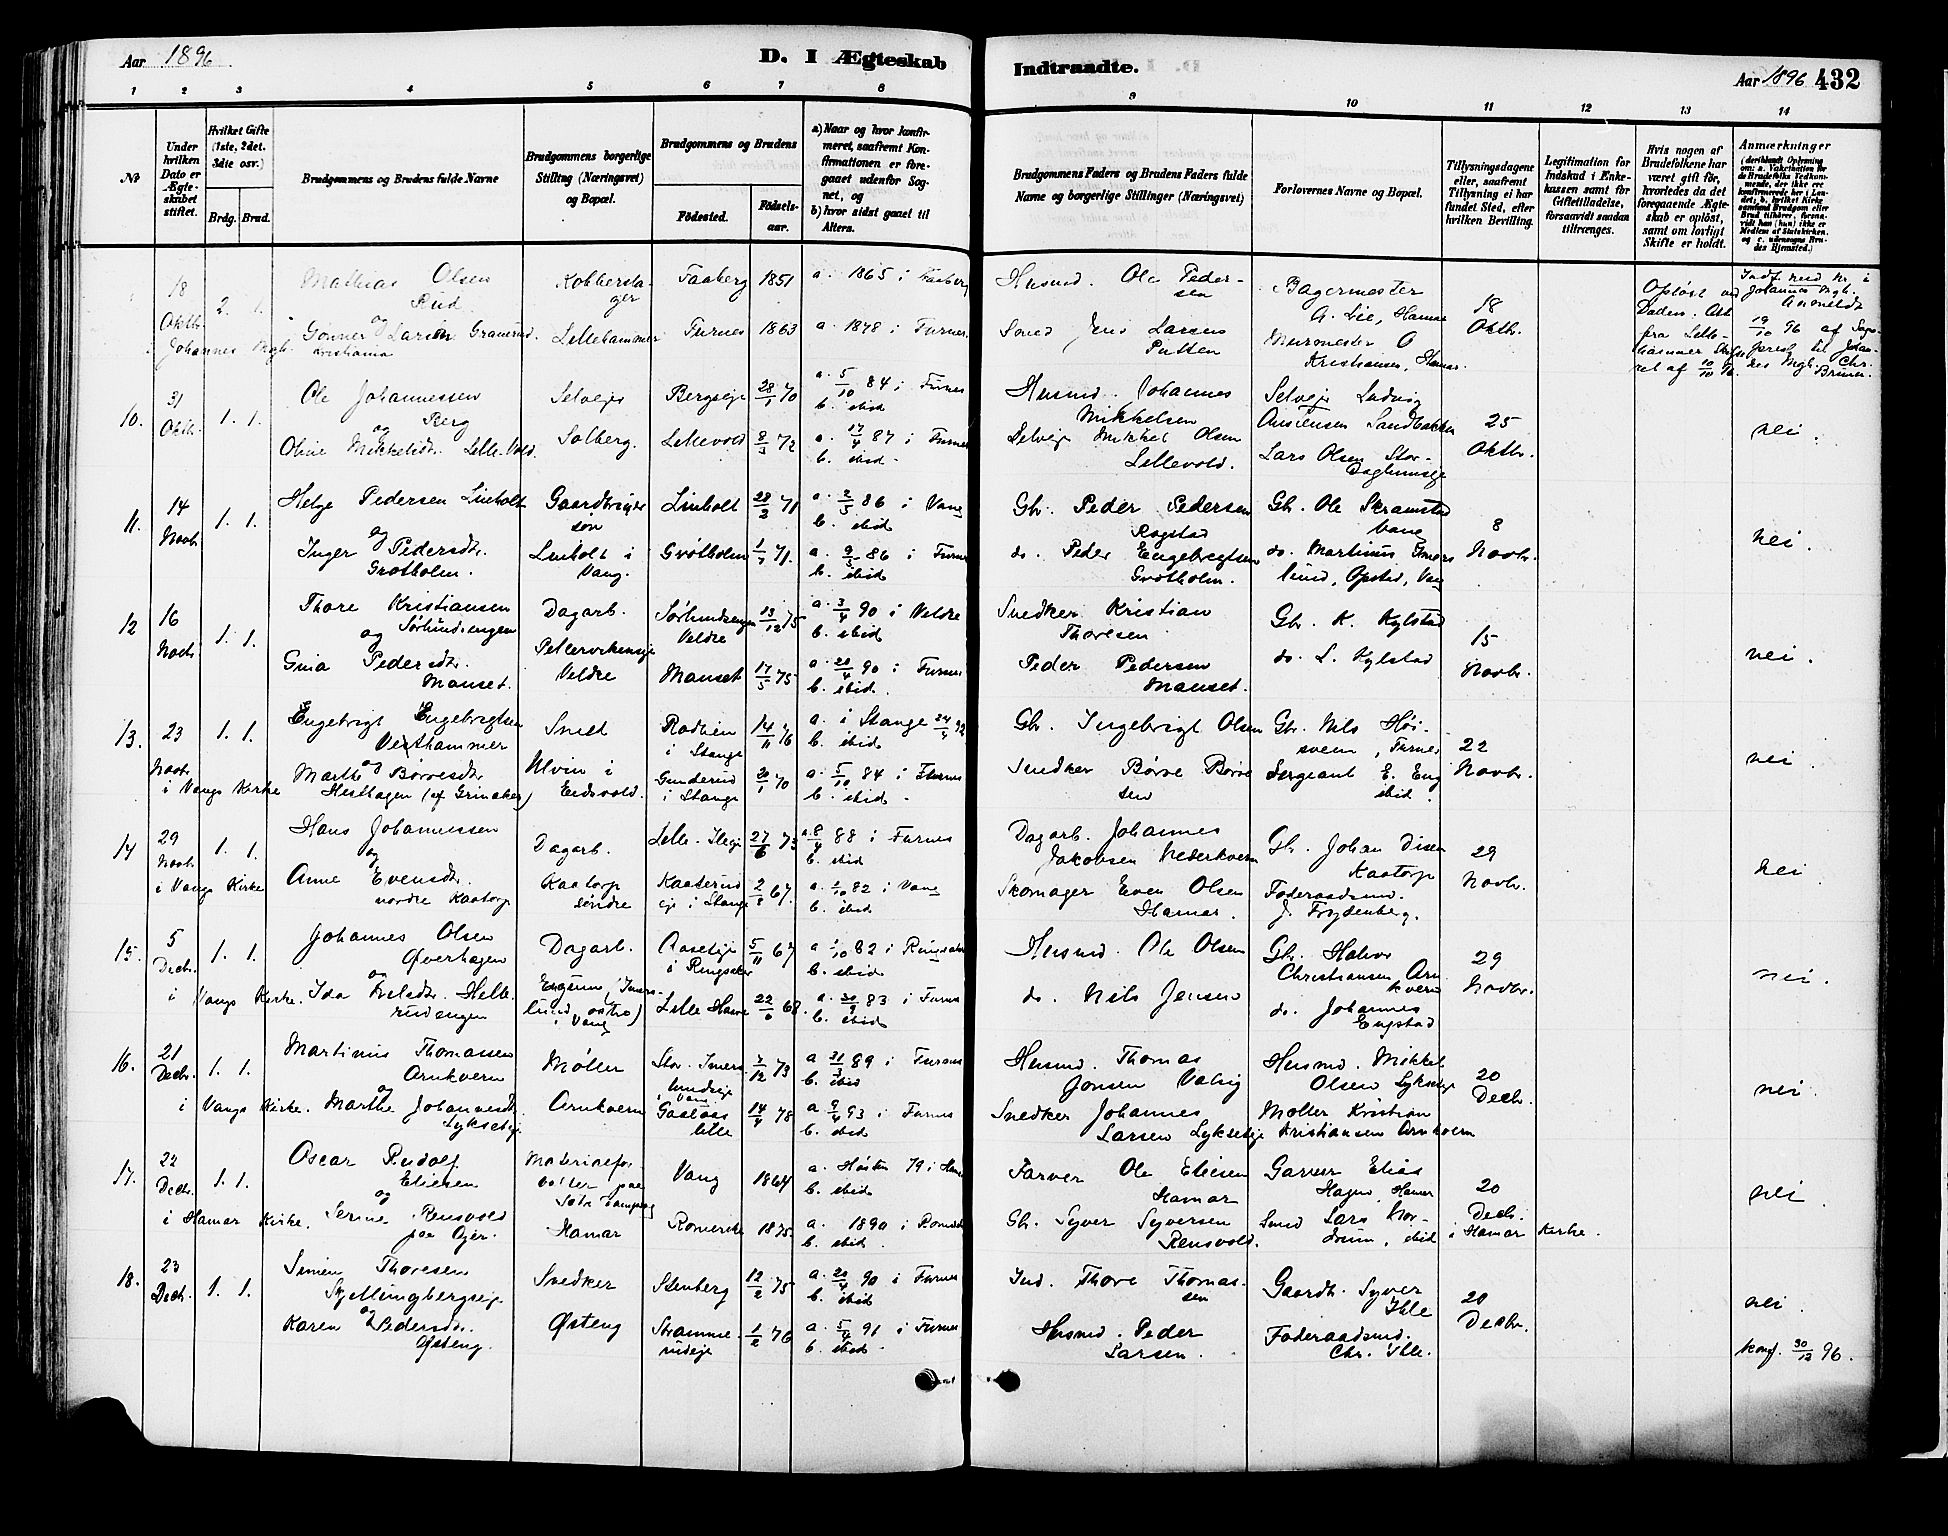 Aar 1896.
D. I Ægteskab
Indtraadte.
Aar 1896 432
1 2 3 4 5 6 7 8 9 10 11 12 13 14
No
Under hvilken Dato er Ægteskabet stiftet.
Hvilket Gifte (1ste, 2det, 3die osv.)
Brdg. Brud.
Brudgommens og Brudens fulde Navne
Brudgommens borgerlige Stilling (Næringsvei) og Bopæl.
Brudgommens og Brudens
Fødested.
Fødselsaar.
a) Naar og hvor konfirmeret, saafremt Konfirmationen er foregaaet udenfor Sognet, og
b) hvor sidst gaaet til Alters.
Brudgommens Faders og Brudens Faders fulde Navne og borgerlige Stillinger (Næringsvei)
Forlovernes Navne og Bopæl.
Tillysningsdagene eller, saafremt Tillysning ei har fundet Sted, efter hvilken Bevilling.
Legitimation for Indskud i Enkekassen samt for Giftetilladelse, forsaavidt saadan tiltrænges.
Hvis nogen af Brudefolkene har været gift før, hvorledes da det foregaaende Ægteskab er opløst, samt om lovligt Skifte er holdt.
Anmærkninger
18 Oktbr. Johannes Mgh. 2. 1.
Mathias Olsen Rud
og
Gunner Larsen Gramrud
Kristiania
Kobberslager
Lillehammer
Faaberg 1851 a. 1865 i Faaberg
Furnes 1863 a. 1878 i Furnes
Husmd. Ole Pedersen
Smed Jens Larsen Putten
Bagermester A. Lie, Hamar
Murmester O Kristiansen, Hamar.
18 Oktbr.
Opløst ved Døden. Att. fra Lillehammer Skifteret af 10/10 96.
10. 31 Oktb. 1. 1.
Ole Johannessen Berg
og
Oline Mikkelsdr. Lille-Vold.
Selveier
Solberg.
Bergseie 28/1 70 a. 5/10 84 i Furnes b. ibid
Lillevold 8/3 72 a. 17/4 87 i Furnes b. ibid.
Husmd. Johannes Mikkelsen
Selveier Mikkel Olsen Lillevold.
Selveier Ludvig Andersen Sandbakken
Lars Olsen Stor-
25 Oktbr.
nei.
11. 14 Novbr 1. 1.
Helge Pedersen Linholt
og
Inger Pedersdr. Grøtholm.
Gaardbrugersøn
Linholt i Vang.
Linholt 28/2 71 a. 2/5 86 i Vang b. ibid
Grøtholm 1/7 71. a. 9/5 86 i Furnes b. ibid.
Gbr. Peder Pedersen Rogstad
do. Peder Engebregtsen Grøtholm.
Gb. Ole Skramstad Vang
do. Martinus Imerslund, Opsted, Vang
8 Novbr.
nei.
12 16 Novbr 1. 1.
Thore Kristiansen Sørlundsengen
og
Gina Pedersdr. Manset.
Dagarb.
Veldre
Sørlundsengen Veldre 13/12 75 a. 3/4 90 i Veldre b. ibid
Manset 17/5 75 a. 20/4 90 i Furnes b. ibid.
Snedker Kristian Thoresen
Peder Pedersen Manset.
Gbr. K. Kylstad
do. L. Kylstad
15 Novbr.
nei.
13. 23 Novbr i Vangs Kirke 1. 1.
Engebrigt Engebrigtsen Vesthammer
og
Marthe Børresdr Hesthagen (af Grinaker)
Smed
Ulvin i Eidsvold.
Rodlien i Stange 14/11 76 a. i Stange 24/4 92 b. ibid
Gunderud i Stange 20/1 70 a. 5/10 84 i Furnes b. ibid.
Gbr. Ingebrigt Olsen
Snedker Børre Børresen
Gbr. Nils Høisveen, Furnes
Sergeant E. Eng ibid.
22 Novbr.
nei.
14 29 Novbr. i Vangs Kirke 1. 1.
Hans Johannessen
og
Anne Evensdr. nordre Kaatorp
Dagarb.
Kaatorp søndre
Lille-Ilseje 27/6 73 a. 8/4 88 i Furnes b. ibid
Kaaterud eje i Stange 2/8 67. a. 1/10 82 i Vang b. ibid
Dagarb. Johannes Jakobsen Nederkvern
Skomager Even Olsen Hamar.
Gb. Johan Disen Kaatorp
Føderaadsmd. J. Frydenberg.
29 Novbr.
nei.
15. 5 Decbr. i Vangs Kirke. 1. 1.
Johannes Olsen Øverhagen
og
Ida Nilsdr. Hellerudengen
Dagarb.
i Vang
Aaseteje i Ringsaker 5/11 67 a 1/10 82 i Ringsaker b. ibid
Lille Hamre 22/6 68. a. 30/9 83 i Furnes b. ibid.
Husmd. Ole Olsen
do. Nils Jensen
Gbr. Halvor Christiansen Arnkvern
do. Johannes Engstad
29 Novbr.
nei.
16. 21 Decbr. i Vangs Kirke. 1. 1.
Martinus Thomassen Arnkvern
og
Marthe Johannesdr. Lykseteje
Møller
Arnkvern
Stor-Imerslundeje i Vang 7/12 73 a 31/3 89 i Furnes b. ibid
Gaalaas lille 14/4 78 a. 9/4 93 i Furnes b. ibid
Husmd. Thomas Jonsen Valeng
Snedker Johannes Larsen Lykseteje
Husmd. Mikkel Olsen Lykseteje
Møller Kristian Kristiansen Arnkvern
20 Decbr.
nei.
17. 22 Decbr. i Hamar Kirke. 1. 1.
Oscar Rudolf Eliesen
og
Serine Rensvold paa Øjer.
Materialforvalter paa
Hamar
Vang 1864 a. Høsten 79 i Hamar b. ibid
Romerike 1875. a. 1890 i Romerike b. ibid.
Farver Ole Eliesen Hamar
Gb. Syver Syversen Rensvold.
Garver Elias Hagen, Hamar
Smed Lars Nordrum, ibid
20 Decbr. i Hamar Kirke.
nei.
18. 23 Decb. 1. 1.
Simen Thoresen Skjellingbergseje
og
Karen Pedersdr. Østeng.
Snedker
Østeng
Stenberg 12/2 75 a. 20/4 90 i Furnes b. ibid
Stramrudeje 1/2 76 a. 5/4 91 i Furnes b. ibid.
Ind. Thore Thomassen
Husmd. Peder Larsen.
Gaardb. Syver Ihle
Føderaadsmd. Chr. Ihle.
20 Decbr.
nei.
konf. 30/12 96.